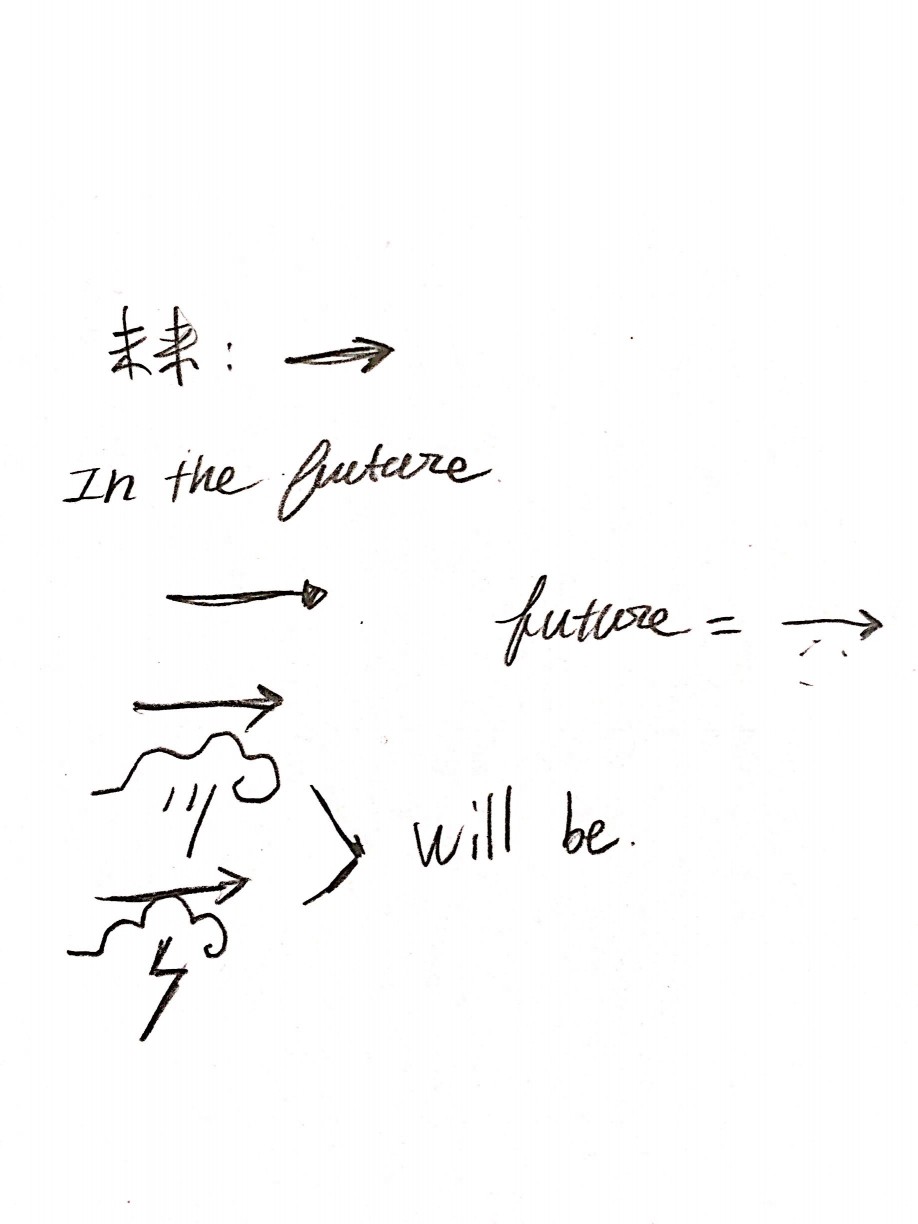 未来: →
In the future
future = →
will be.